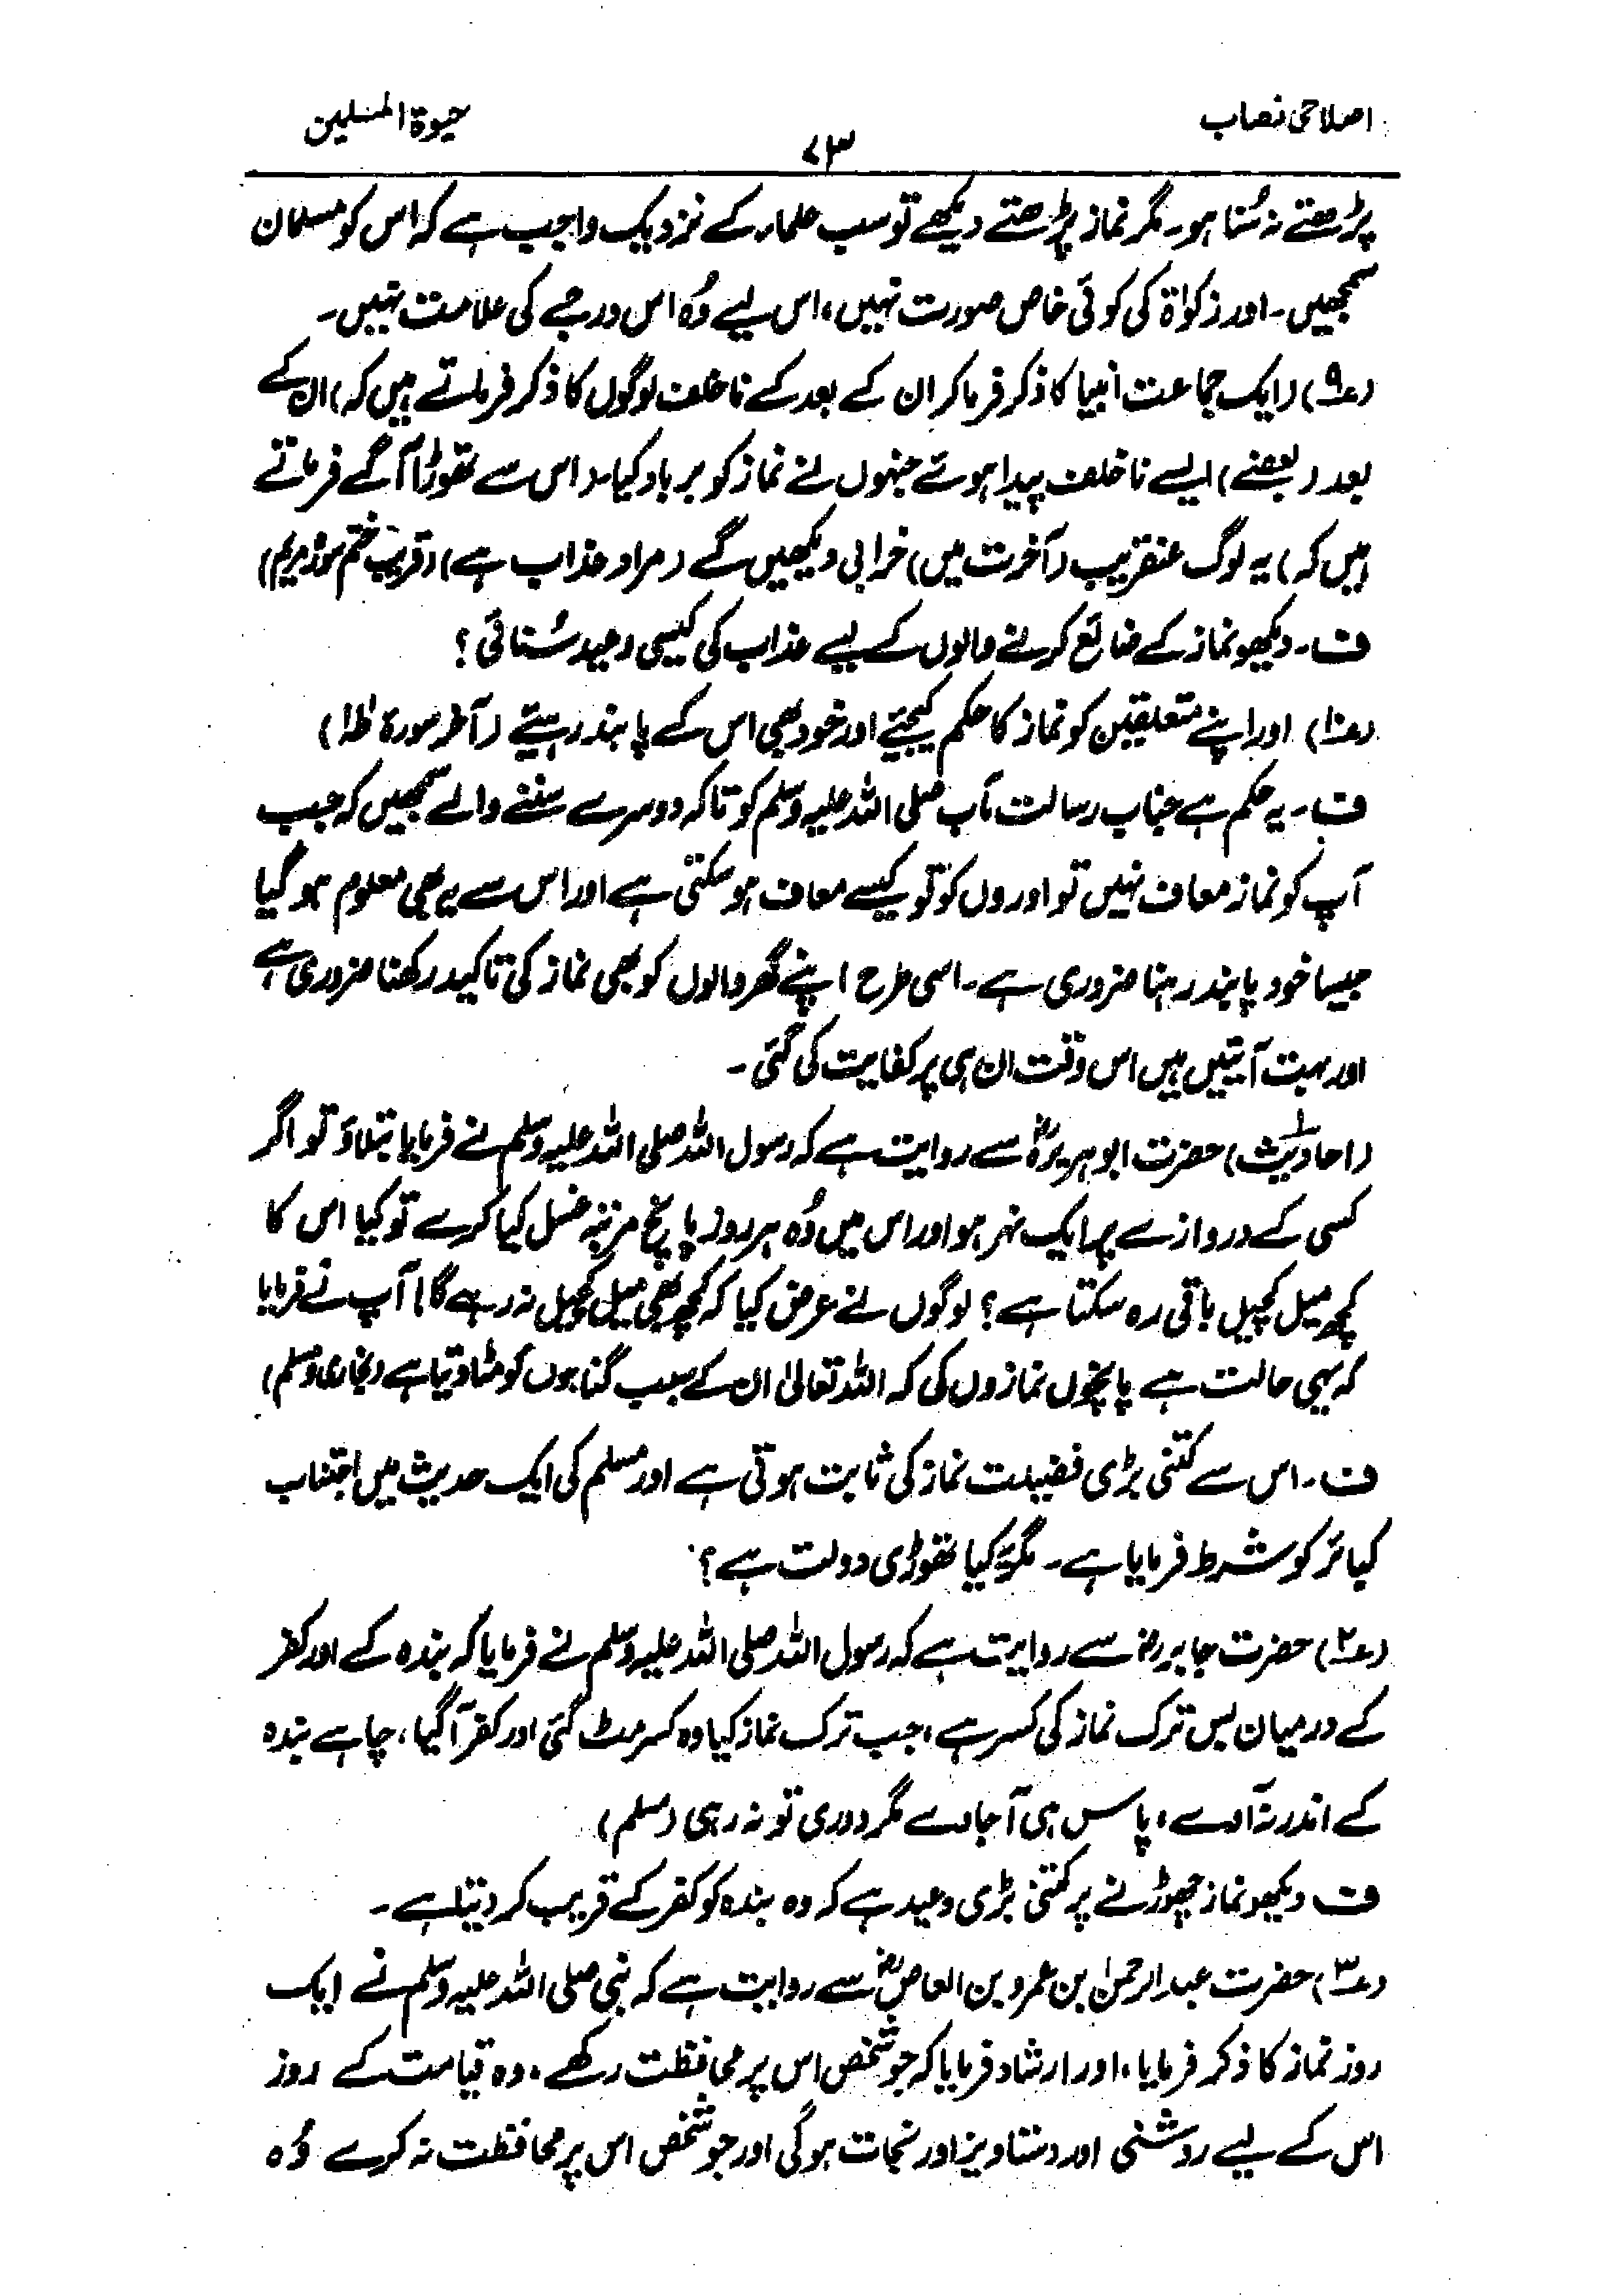 اصلاحی نصاب
۷۳
حیوٰۃ المسلمین
پڑھتے نہ سُنا ہو۔ مگر نماز پڑھتے دیکھے تو سب علماء کے نزدیک واجب ہے کہ اس کو مسلمان
سمجھیں۔ اور زکوٰۃ کی کوئی خاص صورت نہیں، اس لیے وُہ اس درجے کی علامت نہیں۔
(۹) (ایک جماعت انبیا کا ذکر فرما کر ان کے بعد کے ناخلف لوگوں کا ذکر فرماتے ہیں کہ) ان کے
بعد (بعضے) ایسے ناخلف پیدا ہوئے جنہوں نے نماز کو برباد کیا۔ (اس سے تھوڑا آگے فرماتے
ہیں کہ) یہ لوگ عنقریب (آخرت میں) خرابی دیکھیں گے (مراد عذاب ہے) (قریب ختم سورۂ مریم)
ف۔ دیکھو نماز کے ضائع کرنے والوں کے لیے عذاب کی کیسی وعید سُنائی؟
(۱۰) اور اپنے متعلقین کو نماز کا حکم کیجئے اور خود بھی اس کے پابند رہیئے (آخر سورۃ طٰہٰ)
ف۔ یہ حکم ہے جناب رسالت مآب صلی اللہ علیہ وسلم کو تاکہ دوسرے سننے والے سمجھیں کہ جب
آپ کو نماز معاف نہیں تو اوروں کو تو کیسے معاف ہو سکتی ہے اور اس سے یہ بھی معلوم ہو گیا
جیسا خود پابند رہنا ضروری ہے۔ اسی طرح اپنے گھر والوں کو بھی نماز کی تاکید رکھنا ضروری ہے
اور بہت آیتیں ہیں اس وقت ان ہی پر کفایت کی گئی۔
(احادیث) ۱ حضرت ابوہریرہؓ سے روایت ہے کہ رسول اللہ صلی اللہ علیہ وسلم نے فرمایا بتلاؤ تو اگر
کسی کے دروازے پر ایک نہر ہو اور اس میں وُہ ہر روز پانچ مرتبہ غسل کیا کرے تو کیا اس کا
کچھ میل کچیل باقی رہ سکتا ہے؟ لوگوں نے عرض کیا کہ کچھ بھی میل کچیل نہ رہے گا! آپ نے فرمایا
کہ یہی حالت ہے پانچوں نمازوں کی کہ اللہ تعالیٰ ان کے سبب گناہوں کو مٹا دیتا ہے (بخاری و مسلم)
ف۔ اس سے کتنی بڑی فضیلت نماز کی ثابت ہوتی ہے اور مسلم کی ایک حدیث میں اجتناب
کبائر کو شرط فرمایا ہے۔ مگر یہ کیا تھوڑی دولت ہے؟
(۲) حضرت جابر رضؓ سے روایت ہے کہ رسول اللہ صلی اللہ علیہ وسلم نے فرمایا کہ بندہ کے اور کفر
کے درمیان بس ترک نماز کی کسر ہے، جب ترک نماز کیا وہ کسر مٹ گئی اور کفر آ گیا، چاہے بندہ
کے اندر نہ آوے، پاس ہی آ جاوے مگر دوری تو نہ رہی (مسلم)
ف دیکھو نماز چھوڑنے پر کتنی بڑی وعید ہے کہ وہ بندہ کو کفر کے قریب کر دیتا ہے۔
(۳) حضرت عبدالرحمٰن بن عمرو بن العاصؓ سے روایت ہے کہ نبی صلی اللہ علیہ وسلم نے ایک
روز نماز کا ذکر فرمایا، اور ارشاد فرمایا کہ جو شخص اس پر محافظت رکھے، وہ قیامت کے روز
اس کے لیے روشنی اور دستاویز اور نجات ہوگی اور جو شخص اس پر محافظت نہ کرے وُہ